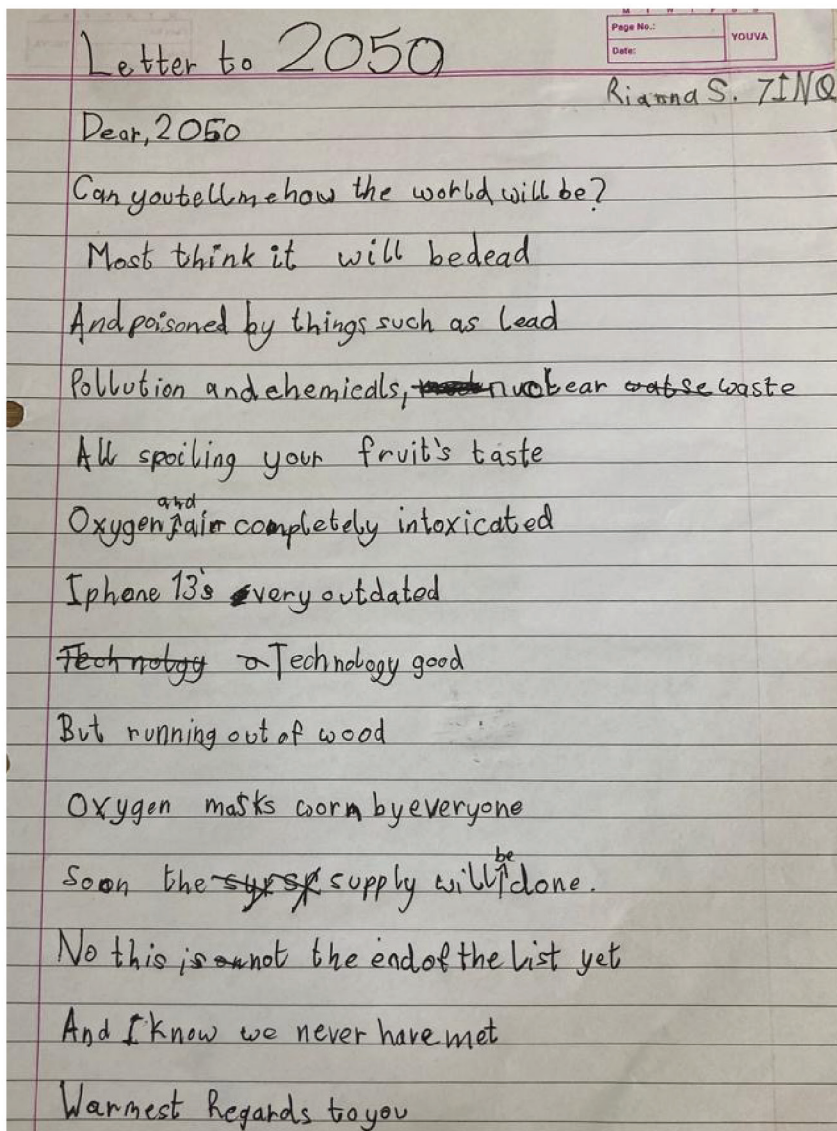 Page No.:
Date:
YOUVA
Letter to 2050
Rianna S. 7INQ
Dear, 2050
Can you tell me how the world will be?
Most think it will be dead
And poisoned by things such as lead
Pollution and chemicals, nuclear watse waste
All spoiling your fruit's taste
Oxygen and air completely intoxicated
Iphone 13's very outdated
Technology Technology good
But running out of wood
Oxygen masks worn by everyone
Soon the supply will be done.
No this is not the end of the list yet
And I know we never have met
Warmest Regards to you